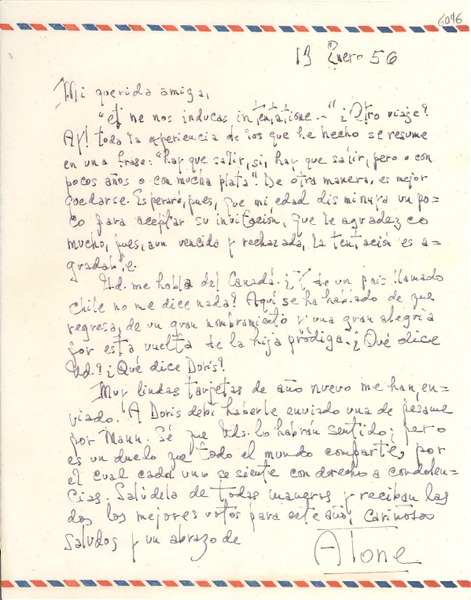 6096
13 Enero 56
Mi querida amiga,
"Et ne nos inducas in tentatione..." ¿Otro viaje?
Ay! toda la experiencia de los que he hecho se resume
en una frase: "hay que salir, sí, hay que salir, pero o con
pocos años o con mucha plata". De otra manera, es mejor
quedarse. Esperaré, pues, que mi edad disminuya un po-
co para aceptar su invitación, que le agradezco
mucho, pues, aun vencida y rechazada, la tentación es a-
gradable.
Ud. me habla del Canadá. ¿Y de un país llamado
Chile no me dice nada? Aquí se ha hablado de que
regresa, de un gran nombramiento y una gran alegría
por esta vuelta de la hija pródiga. ¿Qué dice
Ud.? ¿Qué dice Doris?
Muy lindas tarjetas de año nuevo me han en-
viado. A Doris debí haberle enviado una de pésame
por Mann. Sé que Uds. lo habrán sentido; pero
es un duelo que todo el mundo comparte, por
el cual cada uno se siente con derecho a condolen-
cias. Salúdela de todas maneras y reciban las
dos los mejores votos para este año. Cariñosos
saludos y un abrazo de
Alone